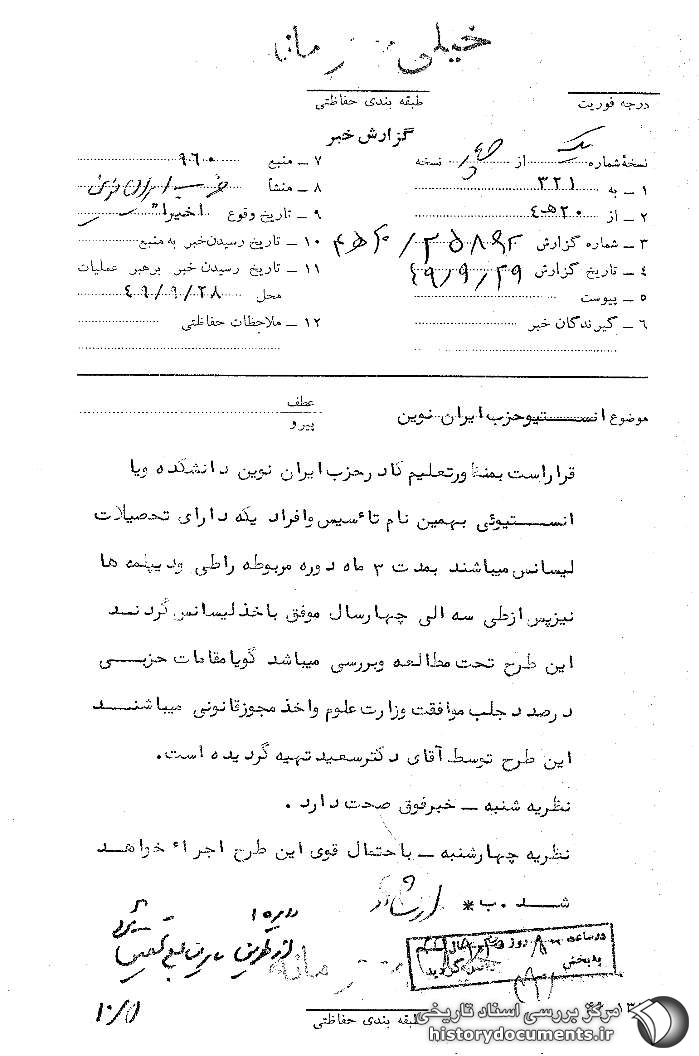 خیلی محرمانه
طبقه بندی حفاظتی
درجه فوریت
گزارش خبر
نسخهٔ شماره یک از چهار نسخه
۱ – به ۳۲۱
۲ – از ۲۰هـ٤
۳ – شماره گزارش
٤ – تاریخ گزارش ۴۹/۹/۲۹
۵ – پیوست
٦ – گیرندگان خبر
۷ – منبع ۹٦۰
۸ – منشأ حزب ایران نوین
۹ – تاریخ وقوع اخیراً
۱۰ – تاریخ رسیدن خبر به منبع
۱۱ – تاریخ رسیدن خبر برهبر عملیات
محل ٤۹/۹/۲۸
۱۲ – ملاحظات حفاظتی
موضوع انستیو حزب ایران نوین
عطف
پیرو
قرار است بمنظور تعلیم کادر حزب ایران نوین دانشکده ویا
انستیوئی بهمین نام تاٴسیس وافراد یکه دارای تحصیلات
لیسانس میباشند بمدت ۳ ماه دوره مربوطه راطی ودیپلمه ها
نیز پس از طی سه الی چهارسال موفق باخذ لیسانس گردند
این طرح تحت مطالعه وبررسی میباشد گویا مقامات حزبی
درصدد جلب موافقت وزارت علوم واخذ مجوز قانونی میباشند
این طرح توسط آقای دکتر سعید تهیه گردیده است.
نظریه شنبه – خبر فوق صحت دارد .
نظریه چهارشنبه – با حتمال قوی این طرح اجراء خواهد
شد . ب *
در ساعت ۸ روز
به بخش
واصل گردید
محرمانه
طبقه بندی حفاظتی
۱۰/۱
مرکز بررسی اسناد تاریخی
historydocuments.ir